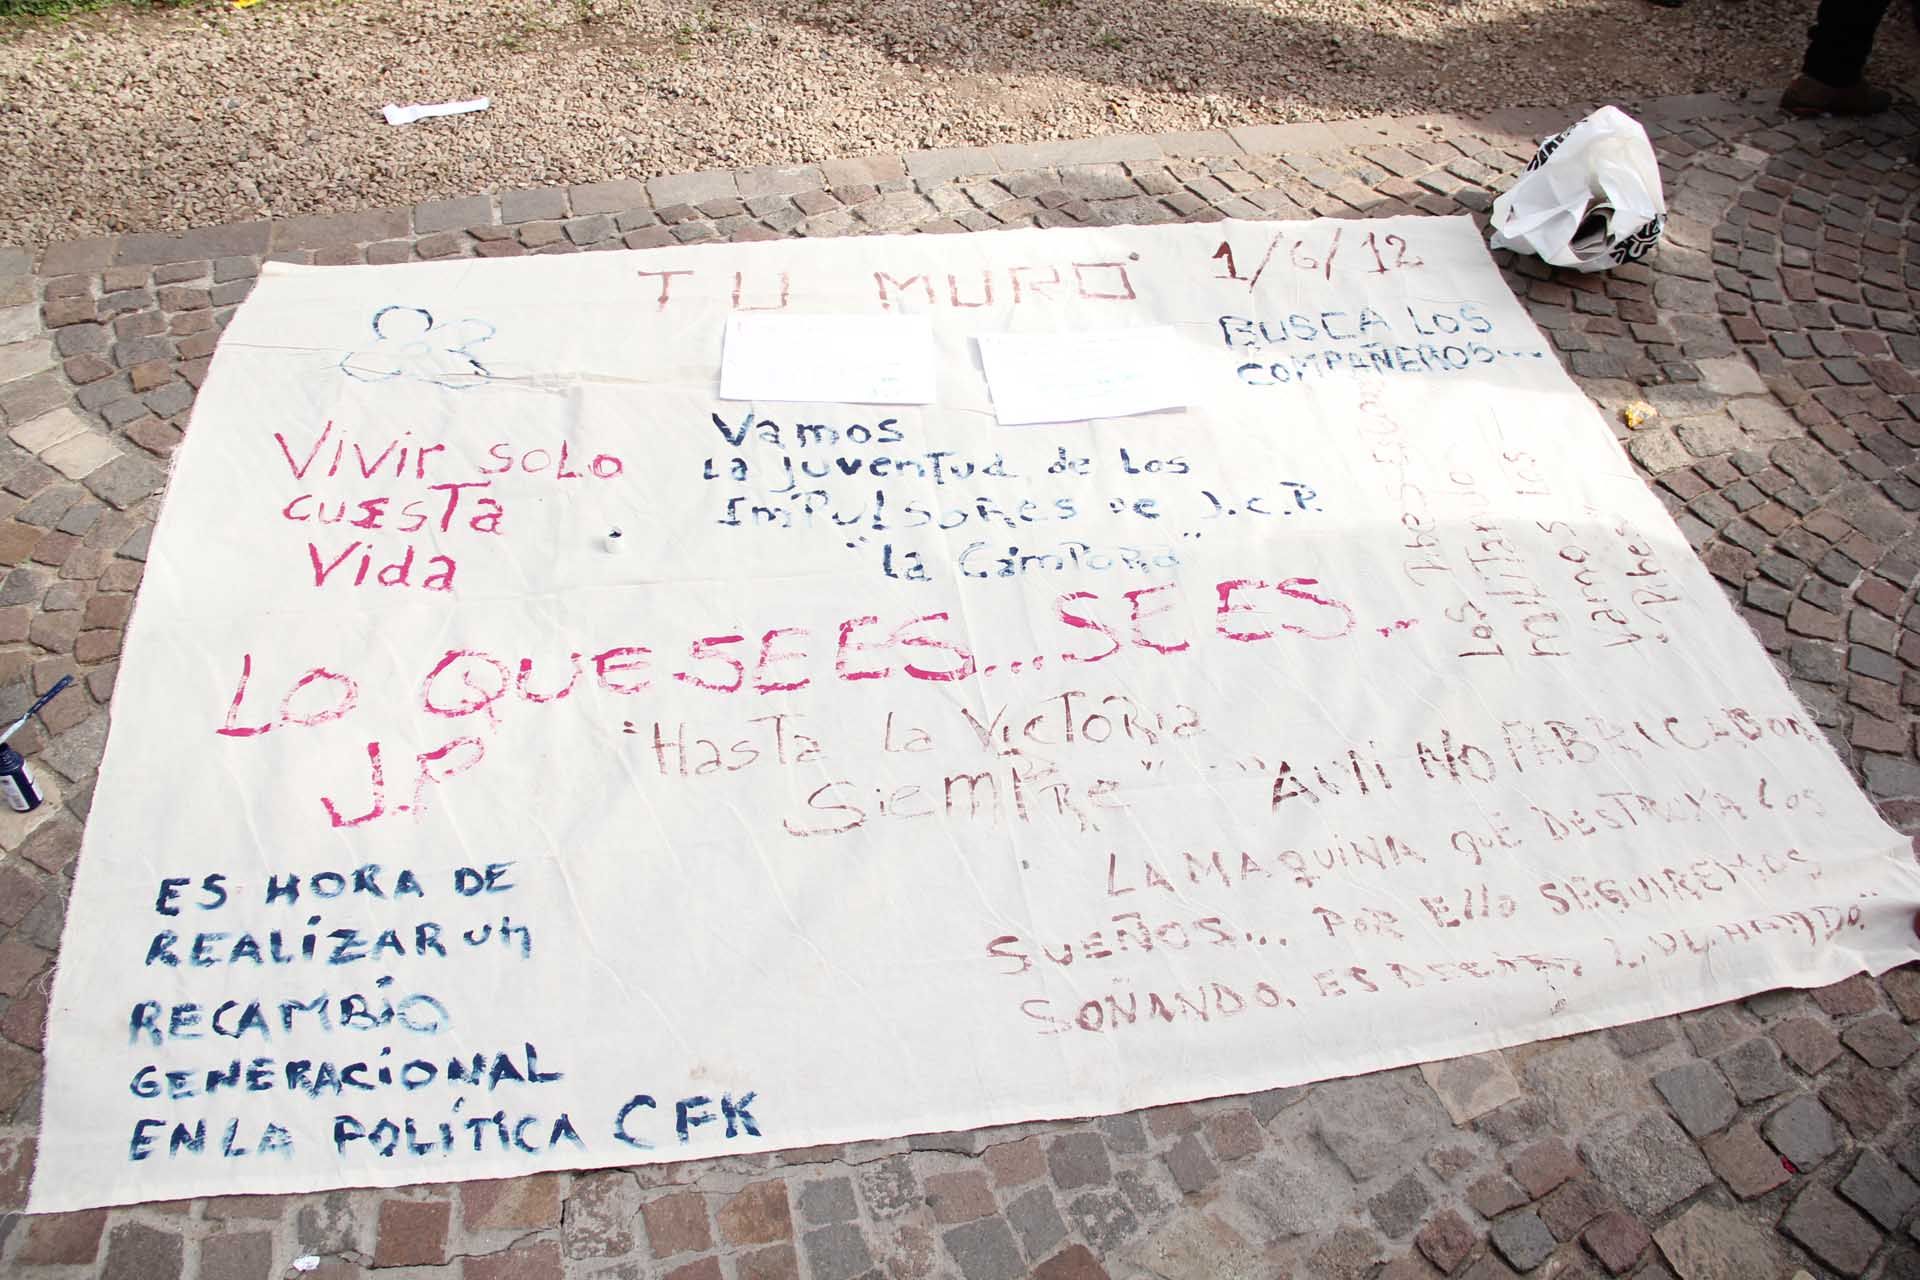 TU MURO 1/6/12
BUSCA LOS
COMPAÑEROS...
Vivir solo
cuesta
Vida
Vamos
La juventud de los
ImPulsores de J.C.P.
"La Campora"
LO QUE SE ES... SE ES..
J.P
"Hasta La Victoria
Siempre"
"AUN NO FABRICARON
LA MAQUINA QUE DESTRUYA LOS
SUEÑOS... POR Ello SEGUIREMOS
SOÑANDO. ES DECIR,
Los Pibes
militando
Vamos los
Pibes
ES HORA DE
REALIZAR un
RECAMBIO
GENERACIONAL
EN LA POLÍTICA CFK